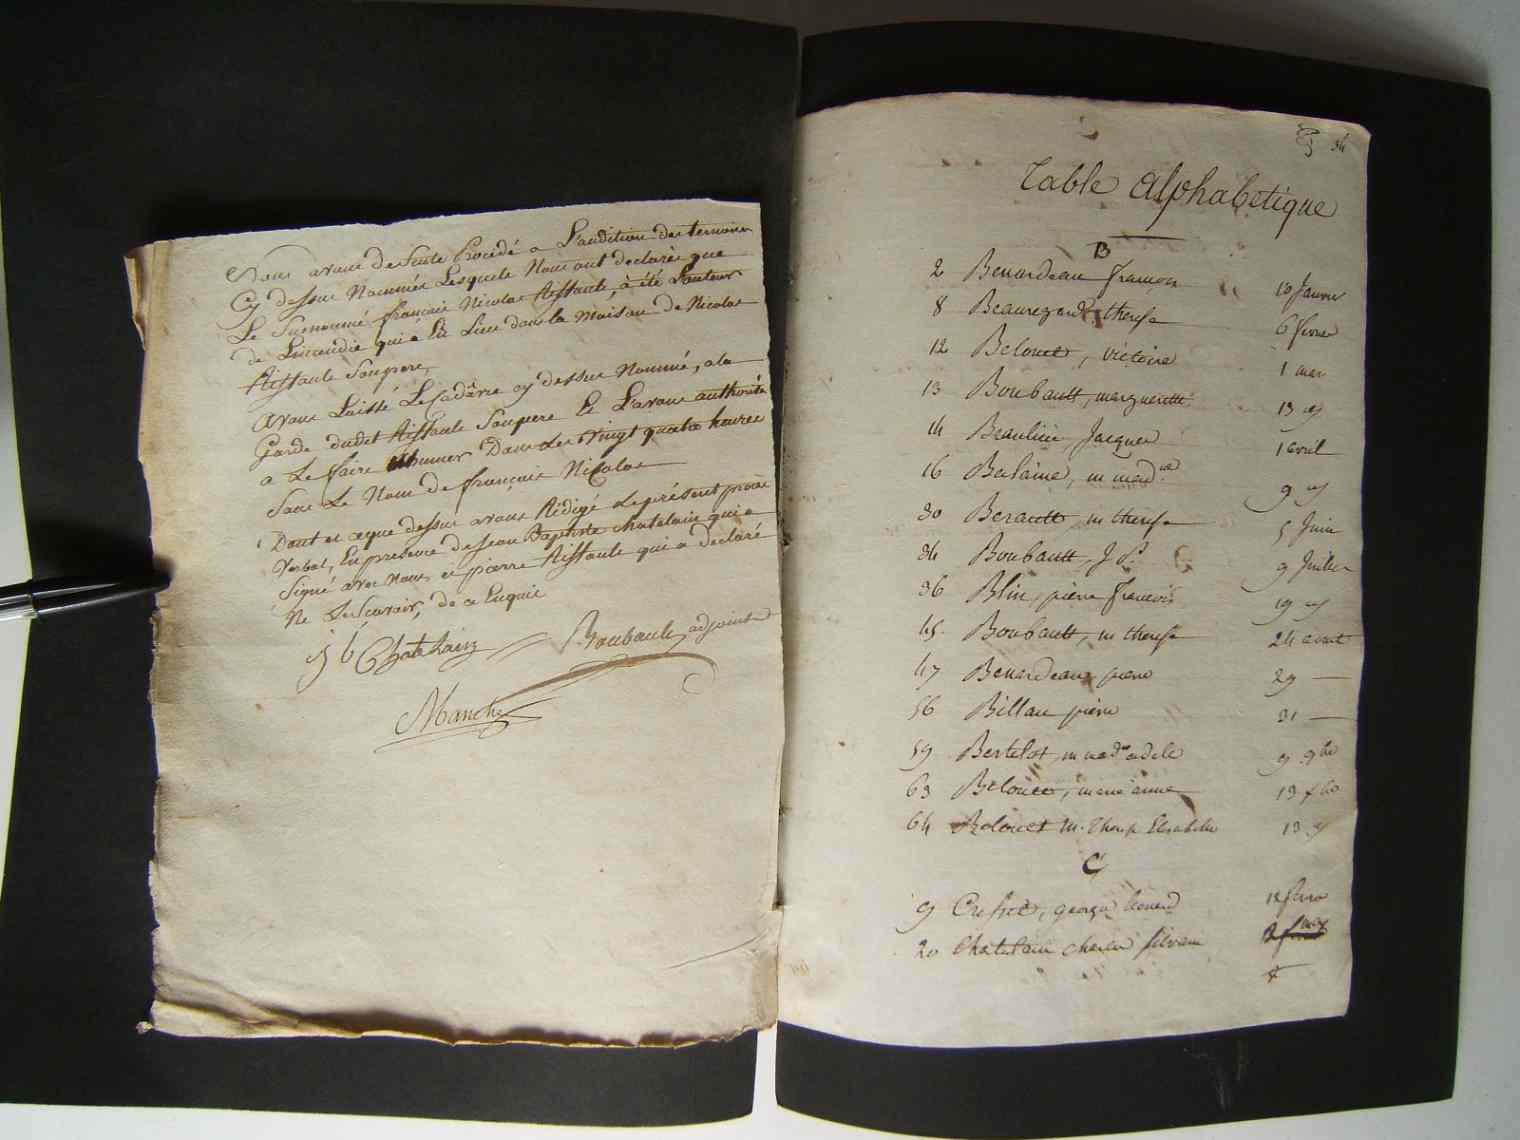 Nous avons de Suite Procédé a L'audition des temoins
Cy dessus Nommés Lesquels Nous ont declarés que
Le Surnommé françois Nicolas Aissault, à été L'auteur
de L'incendie qui a Eû Lieu dans la maison de Nicolas
Aissault Son pere,
avons Laissé Le Cadâvre cy dessus Nommé, a la
Garde dudit Aissault Son pere Et L'avons authorisé
a Le faire inhumer Dans Les Vingt quatre heures
Sous Le Nom de françois Nicolas
Dont et ce que dessus avons Rédigé Le présent procé
Verbal, En presence de Jean Baptiste Chatelain qui a
Signé avec Nous et pierre Aissault qui a declaré
Ne Le Scavoir, de ce Enquis
J b Chatelain Boubault adjoint
Manch
34
Table Alphabetique
B
2 Benardeau francois 10 Janvier
8 Beauregard therese 6 fevrier
12 Belouet, victoire 1 mars
13 Boubault, marguerite 13
14 Beaulieu, Jacques 1 avril
16 Barlaine, m mad.ne 9
30 Berault, m therese 5 Juin
34 Boubault, J 9 Juillet
36 Blin, pierre francois 19
45. Boubault, m therese 24 aout
47 Benardeau pierre 29 —
56 Billau pierre 31 —
59 Bertelot, m mad.ne adele 9 9bre
63 Belouet, marie anne 13 xbre
64 Belouet M. Therese Elisabethe 13
C
9 georges Leonard 12 fevrier
20 Chatelain charles silvain